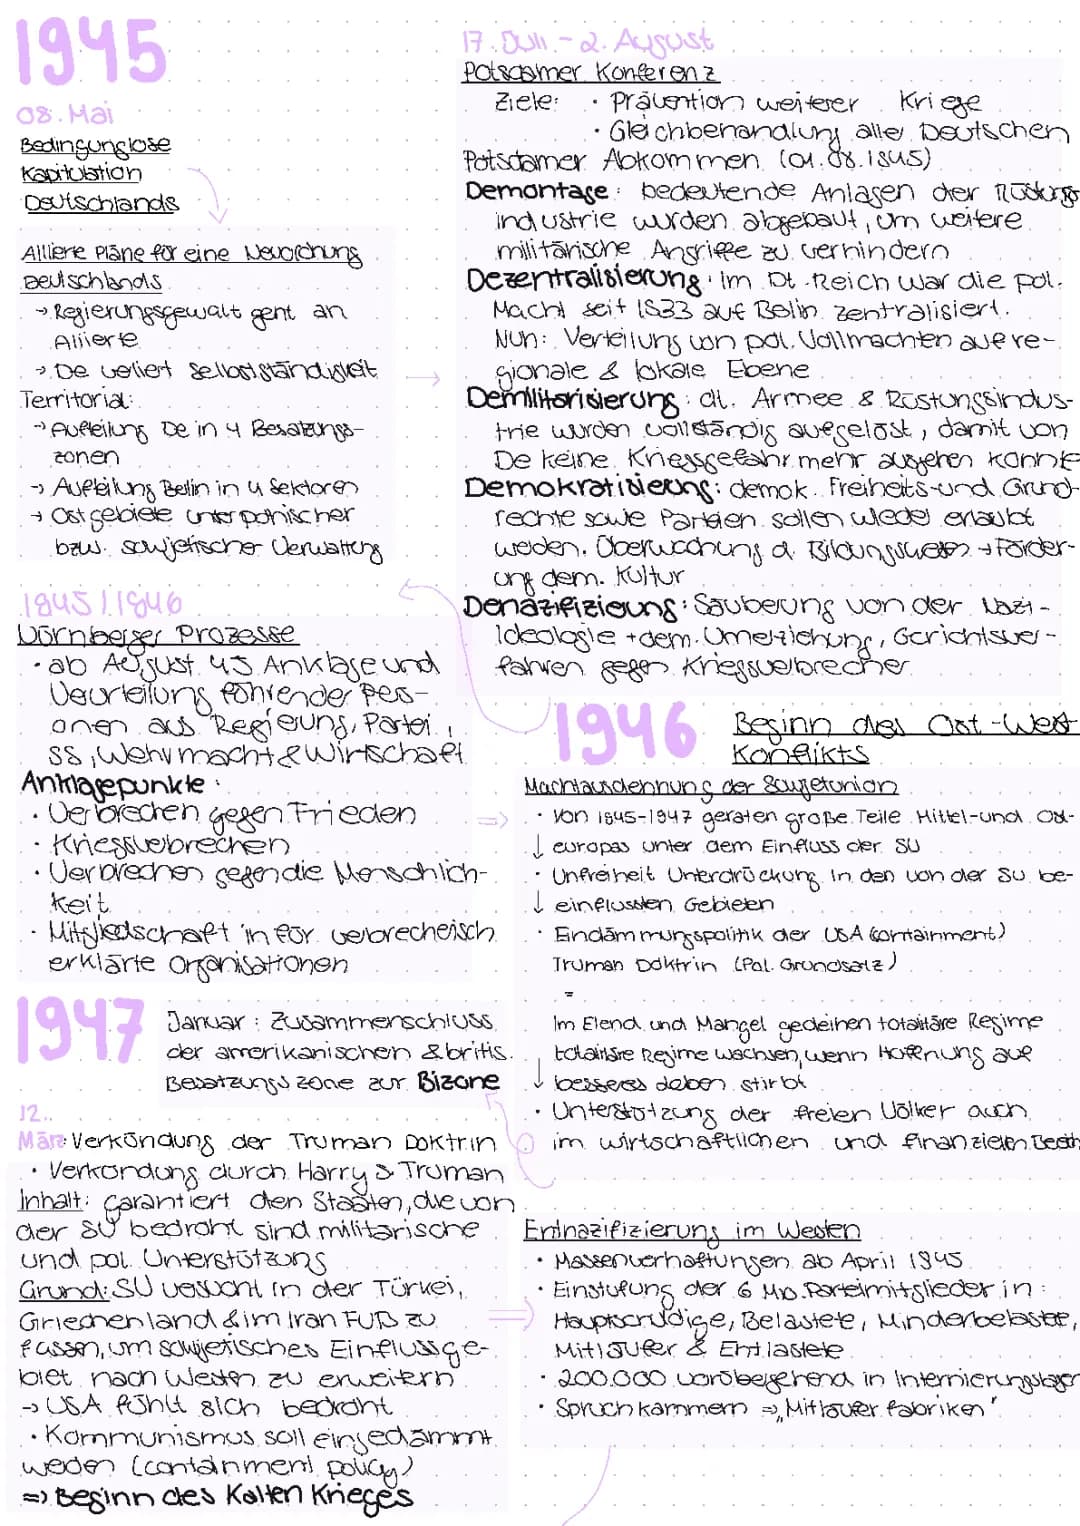 1945
08. Mai
Bedingungslose
Kapitulation
Deutschlands
Alliierte Pläne für eine Neuordnung
Deutschlands
→ Regierungsgewalt geht an
Alliierte
→ De verliert Selbstständigkeit
Territorial:
→ Aufteilung De in 4 Besatzungs-
zonen
→ Aufteilung Berlin in 4 Sektoren
→ Ostgebiete unter polnischer
bzw. sowjetischer Verwaltung
17. Juli - 2. August
Potsdamer Konferenz
Ziele: · Prävention weiterer Kriege
· Gleichbehandlung aller Deutschen
Potsdamer Abkommen (01.08.1945)
Demontage: bedeutende Anlagen der Rüstungs
industrie wurden abgebaut, um weitere
militärische Angriffe zu verhindern
Dezentralisierung: Im Dt. Reich war die pol.
Macht seit 1933 auf Belin zentralisiert.
Nun: Verteilung von pol. Vollmachten auf re-
gionale & lokale Ebene
Demilitarisierung: dt. Armee & Rüstungsindus-
trie wurden vollständig aufgelöst, damit von
De keine Kriegsgefahr mehr ausgehen konnte
Demokratisierung: demok. Freiheits-und Grund-
rechte sowie Parteien sollen wieder erlaubt
werden. Überwachung d. Bildungswesen → Förder-
ung dem. Kultur
Denazifizierung: Säuberung von der Nazi-
Ideologie + dem. Umerziehung, Gerichtsver-
fahren gegen Kriegsverbrecher
1945/1946
Nürnberger Prozesse
· ab August 45 Anklage und
Verurteilung führender Pers-
onen aus Regierung, Partei,
SS, Wehrmacht & Wirtschaft
Anklagepunkte:
· Verbrechen gegen Frieden
· Kriegsverbrechen
· Verbrechen gegen die Menschlich-
keit
· Mitgliedschaft in für verbrecherisch
erklärte Organisationen
1946 Beginn des Ost-West
Konflikts
Machtausdehnung der Sowjetunion
· Von 1945-1947 geraten große Teile Mittel-und Ost-
↓ europas unter dem Einfluss der SU
· Unfreiheit Unterdrückung in den von der SU be-
↓ einflussten Gebieten
· Eindämmungspolitik der USA (containment)
Truman Doktrin (Pol. Grundsatz)
=
Im Elend und Mangel gedeihen totalitäre Regime
totalitäre Regime wachsen, wenn Hoffnung auf
↓ besseres Leben stirbt
· Unterstützung der freien Völker auch
im wirtschaftlichen und finanziellen
1947 Januar: Zusammenschluss
der amerikanischen & britis.
Besatzungszone zur Bizone
12.
März: Verkündung der Truman Doktrin
· Verkündung durch Harry S Truman
Inhalt: garantiert den Staaten, die von
der SU bedroht sind militärische
und pol. Unterstützung
Grund: SU versucht in der Türkei,
Griechenland & im Iran Fuß zu
fassen, um sowjetisches Einflussge-
biet nach Westen zu erweitern
→ USA fühlt sich bedroht
· Kommunismus soll eingedämmt
werden (containment policy)
⇒ Beginn des Kalten Krieges
Entnazifizierung im Westen
· Massenverhaftungen ab April 1945
· Einstufung der 6 Mio. Parteimitglieder in:
Hauptschuldige, Belastete, Minderbelastete,
Mitläufer & Entlastete
· 200.000 vorübergehend in Internierungslager
· Spruchkammern ⇒ „Mitläuferfabriken"